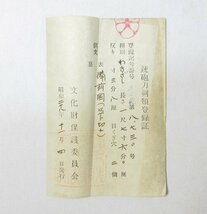 銃砲刀剣類登録証
登録記号番号 第八七三〇号
種別 わきざし
長さ 一尺七寸六分〇厘
反り 寸三分八厘
目くぎ穴 二個
銘文 表 備前国(以下切)
裏
文化財保護委員会
昭和 年十一月四日発行